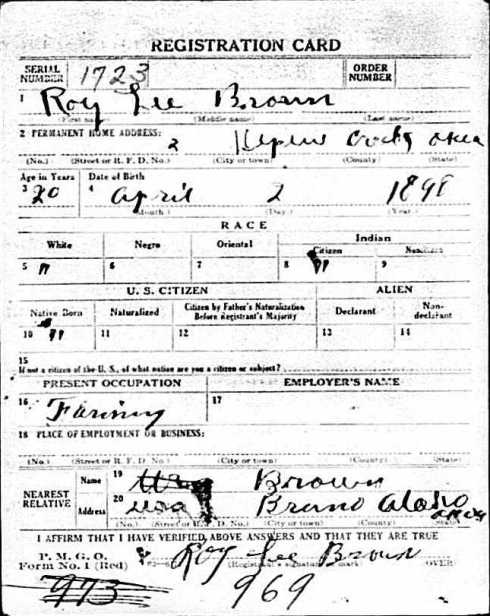 REGISTRATION CARD
SERIAL NUMBER 1723 ORDER NUMBER
1 Roy Lee Brown
(First name) (Middle name) (Last name)
2 PERMANENT HOME ADDRESS:
2 Okla
(No.) (Street or R. F. D. No.) (City or town) (County) (State)
Age in Years Date of Birth
3 20 4 April 2 1898
(Month.) (Day.) (Year.)
RACE
White Negro Oriental Indian
Citizen Noncitizen
5 " 6 7 8 9
U. S. CITIZEN ALIEN
Native Born Naturalized Citizen by Father's Naturalization Before Registrant's Majority Declarant Non-declarant
10 " 11 12 13 14
15
If not a citizen of the U. S., of what nation are you a citizen or subject?
PRESENT OCCUPATION EMPLOYER'S NAME
16 Farming 17
18 PLACE OF EMPLOYMENT OR BUSINESS:
(No.) (Street or R. F. D. No.) (City or town) (County) (State)
NEAREST RELATIVE Name 19 Brown
Address 20 Bruno
(No.) (Street or R. F. D. No.) (City or town) (County) (State)
I AFFIRM THAT I HAVE VERIFIED ABOVE ANSWERS AND THAT THEY ARE TRUE
P. M. G. O.
Form No. 1 (Red) Roy Lee Brown
(Registrant's signature or mark) OVER
973 969